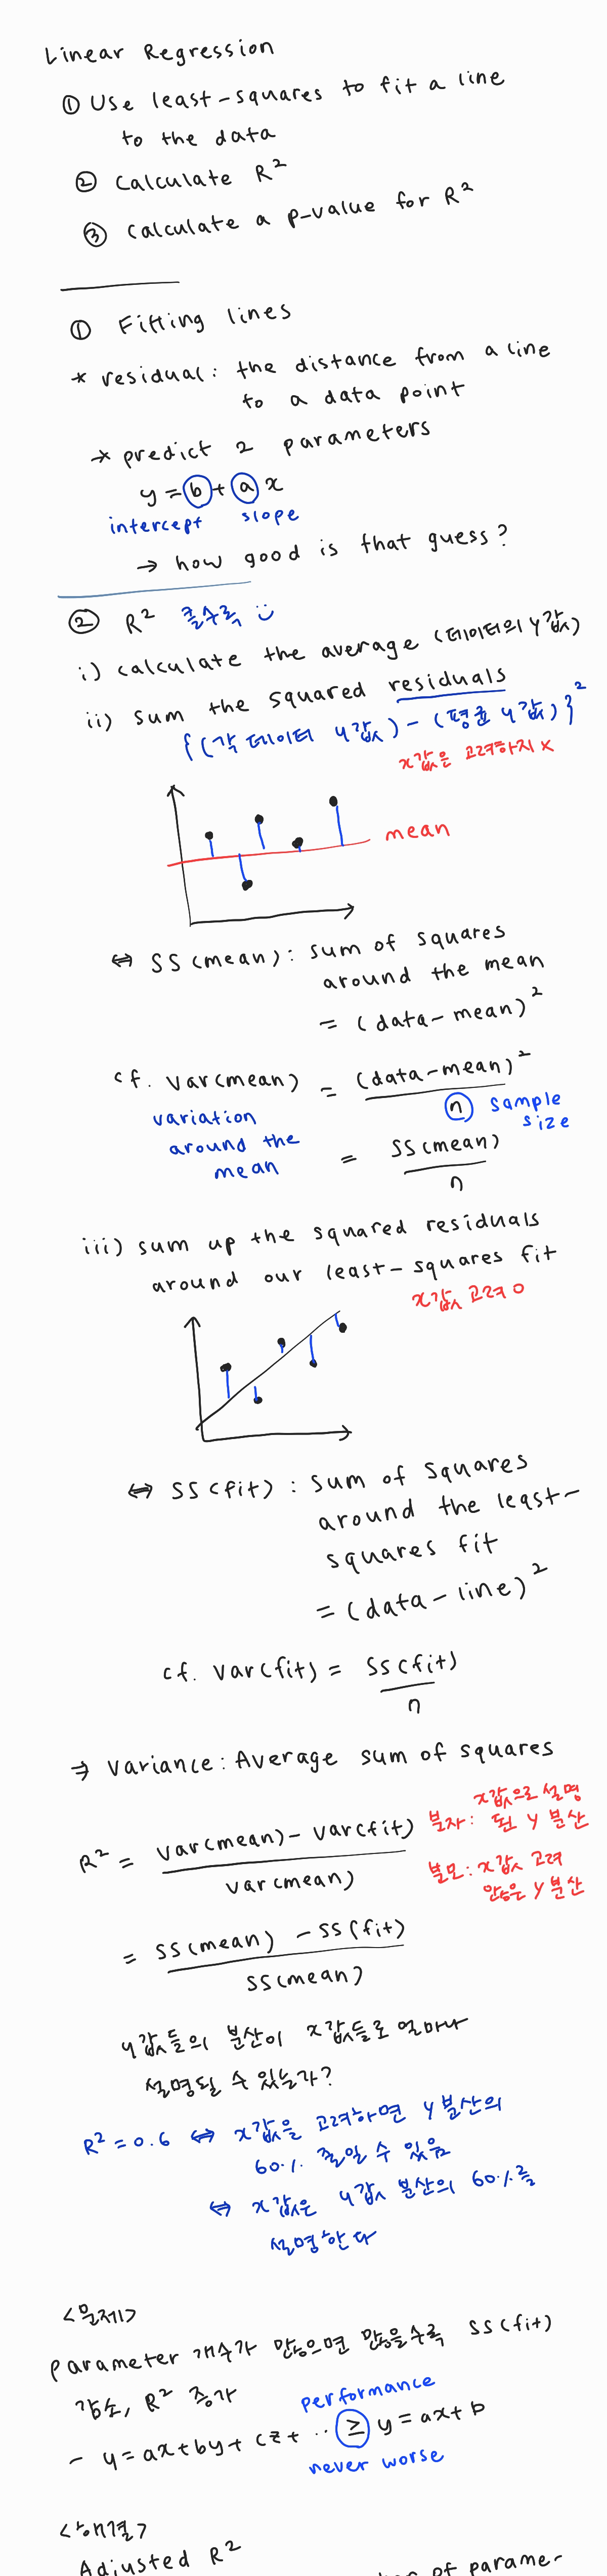 Linear Regression
① Use least-squares to fit a line
to the data
② Calculate R²
③ Calculate a p-value for R²
① Fitting lines
* residual: the distance from a line
to a data point
* predict 2 parameters
y = b + a x
intercept slope
→ how good is that guess?
② R² 클수록 :)
i) calculate the average (데이터의 y값)
ii) sum the squared residuals
{(각 데이터 y값) - (평균 y값)}²
x값은 고려하지 x
mean
⇔ SS(mean): sum of squares
around the mean
= (data-mean)²
cf. var(mean) = (data-mean)² / n
sample
size
variation
around the
mean
= SS(mean) / n
iii) sum up the squared residuals
around our least-squares fit
x값 고려 o
⇔ SS(fit): sum of squares
around the least-
squares fit
= (data-line)²
cf. Var(fit) = SS(fit) / n
⇒ Variance: Average sum of squares
R² = var(mean) - var(fit) / var(mean)
x값으로 설명
분자: 된 y 분산
분모: x값 고려
않은 y 분산
= SS(mean) - SS(fit) / SS(mean)
y값들의 분산이 x값들로 얼마나
설명될 수 있는가?
R² = 0.6 ⇔ x값을 고려하면 y분산의
60% 줄일 수 있음
⇔ x값은 y값 분산의 60%를
설명한다
<문제>
parameter 개수가 많으면 많을수록 SS(fit)
감소, R² 증가
performance
- y = ax + by + cz + ·· ≥ y = ax + b
never worse
<해결>
Adjusted R²
of parame-